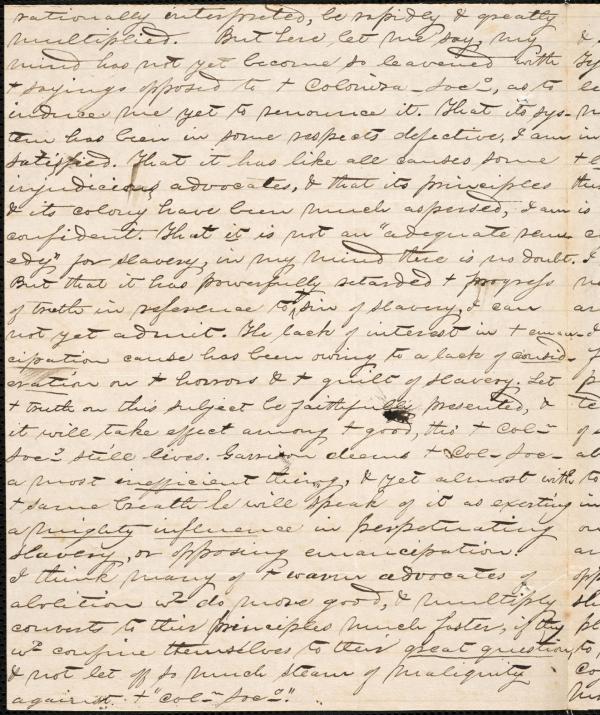 rationally interpreted, be rapidly & greatly
multiplied. But here let me say, my
mind has not yet become so leavened with
+ sayings opposed to + Coloniza- Soc.y, as to
induce me yet to renounce it. That its sys-
tem has been in some respects defective, I am
satisfied. That it has like all causes some
injudicious advocates, & that its principles
& its colony have been much aspersed, I am
confident. That it is not an "adequate rem
edy" for slavery, in my mind there is no doubt.
But that it has powerfully retarded + progress
of truth in reference to + sin of slavery, I can
not yet admit. The lack of interest in + eman-
cipation cause has been owing to a lack of consid-
eration on + horrors & + guilt of slavery. Let
+ truth on this subject be faithfully presented, &
it will take effect among + good, tho' + Col-
Soc.y still lives. Garrison deems + Col- Soc-
a most inefficient thing, & yet almost with
+ same breath he will speak of it as exerting
a mighty influence in perpetuating
slavery, or opposing emancipation.
I think many of + warm advocates of
abolition wd do more good, & multiply
converts to their principles much faster, if they
wd confine themselves to their great question,
& not let off so much steam of malignity
against + "Col- Soc.y."